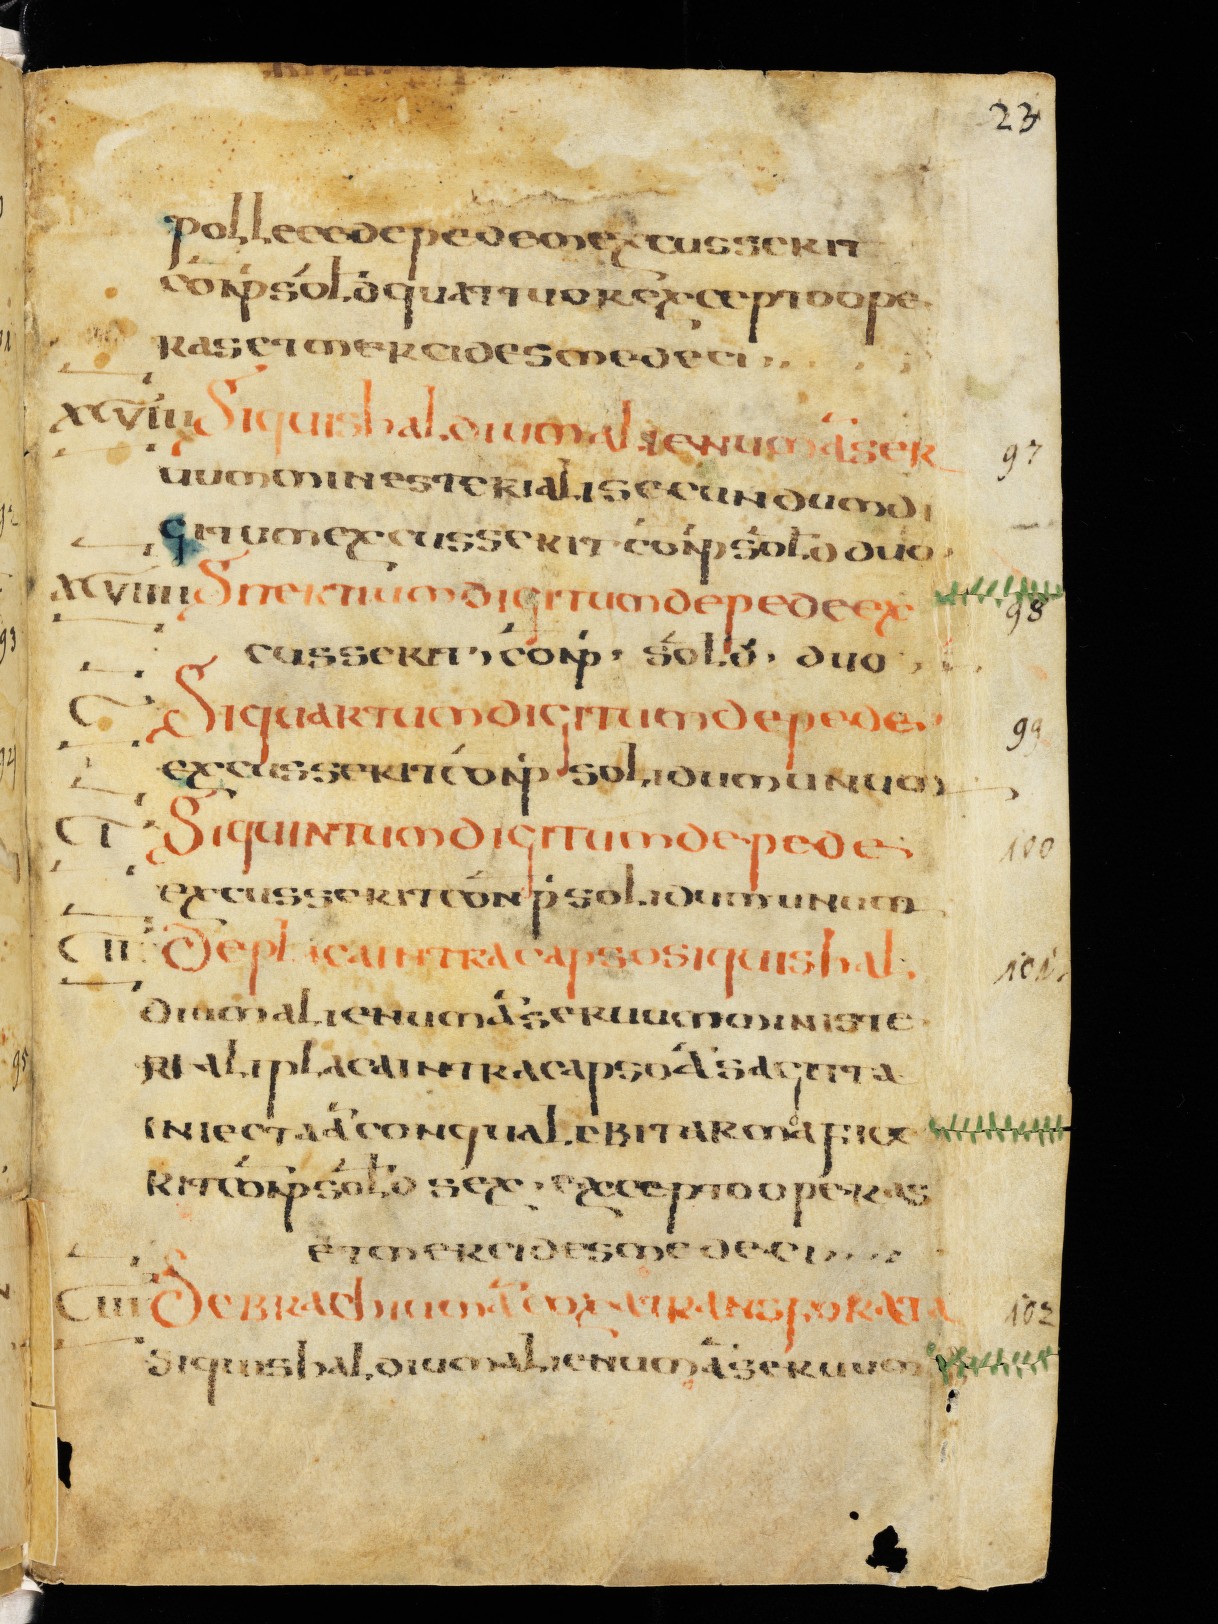 23
pollece de pedem excusserit
conp sol̄ quattuor excepto ope
ras et mercides medeci
xcviii Si quis haldium alienum a̅ ser 97
uum minesteriali secundum di
gitum excusserit conp sol̄ duo
xcviiii Si tertium digitum de pede ex 98
cusserit, conp· sol̄· duo
c Si quartum digitum de pedes 99
excusserit conp solidum unum
ci Si quintum digitum de pedes 100
excusserit conp solidum unum
cii De plica intra capso si quis hal 101
dium alienum a̅ seruum ministe
riali placa intra capso a̅ sagitta
iniecta a̅ con qualebit arma fice
rit conp sol̄ sex, excepto operas
et mercides medeci
ciii De brachium a̅ coxa transforata 102
Si quis haldium alienum a̅ seruum